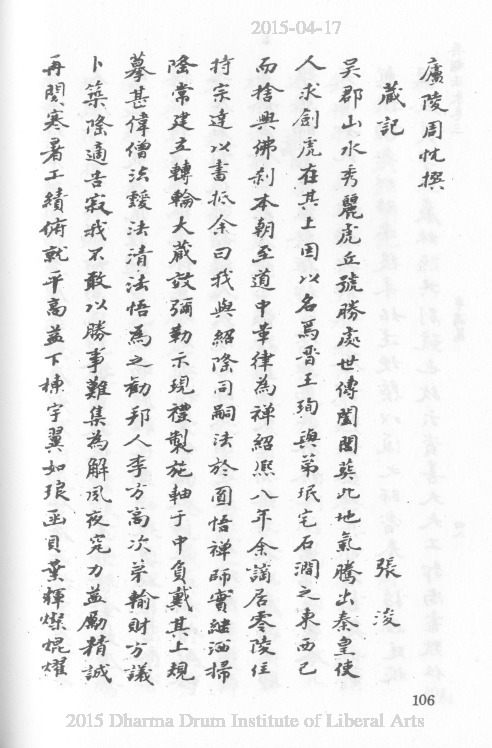 2015-04-17
廬陵周忱撰
藏記
張浚
吴郡山水秀麗虎丘號勝處世傳闔閭葬此地氣騰出秦皇使
人求劍虎在其上因以名焉晋王珣與弟珉宅石澗之東西已
而捨與佛刹本朝至道中革律為禅紹熈八年余謫居零陵住
持宗達以書抵余曰我與紹隆同嗣法於圓悟禅師實継洒掃
隆常建立轉輪大藏效彌勒示現禮製施軸于中負戴其上規
摹甚偉僧法靉法清法悟為之勸邦人李方髙次苐輸財方議
卜築隆適告寂我不敢以勝事難集為解夙夜究力益勵精誠
再閱寒暑工績俯就平髙益下棟宇翼如琅函貝葉輝燦焜燿
106
2015 Dharma Drum Institute of Liberal Arts